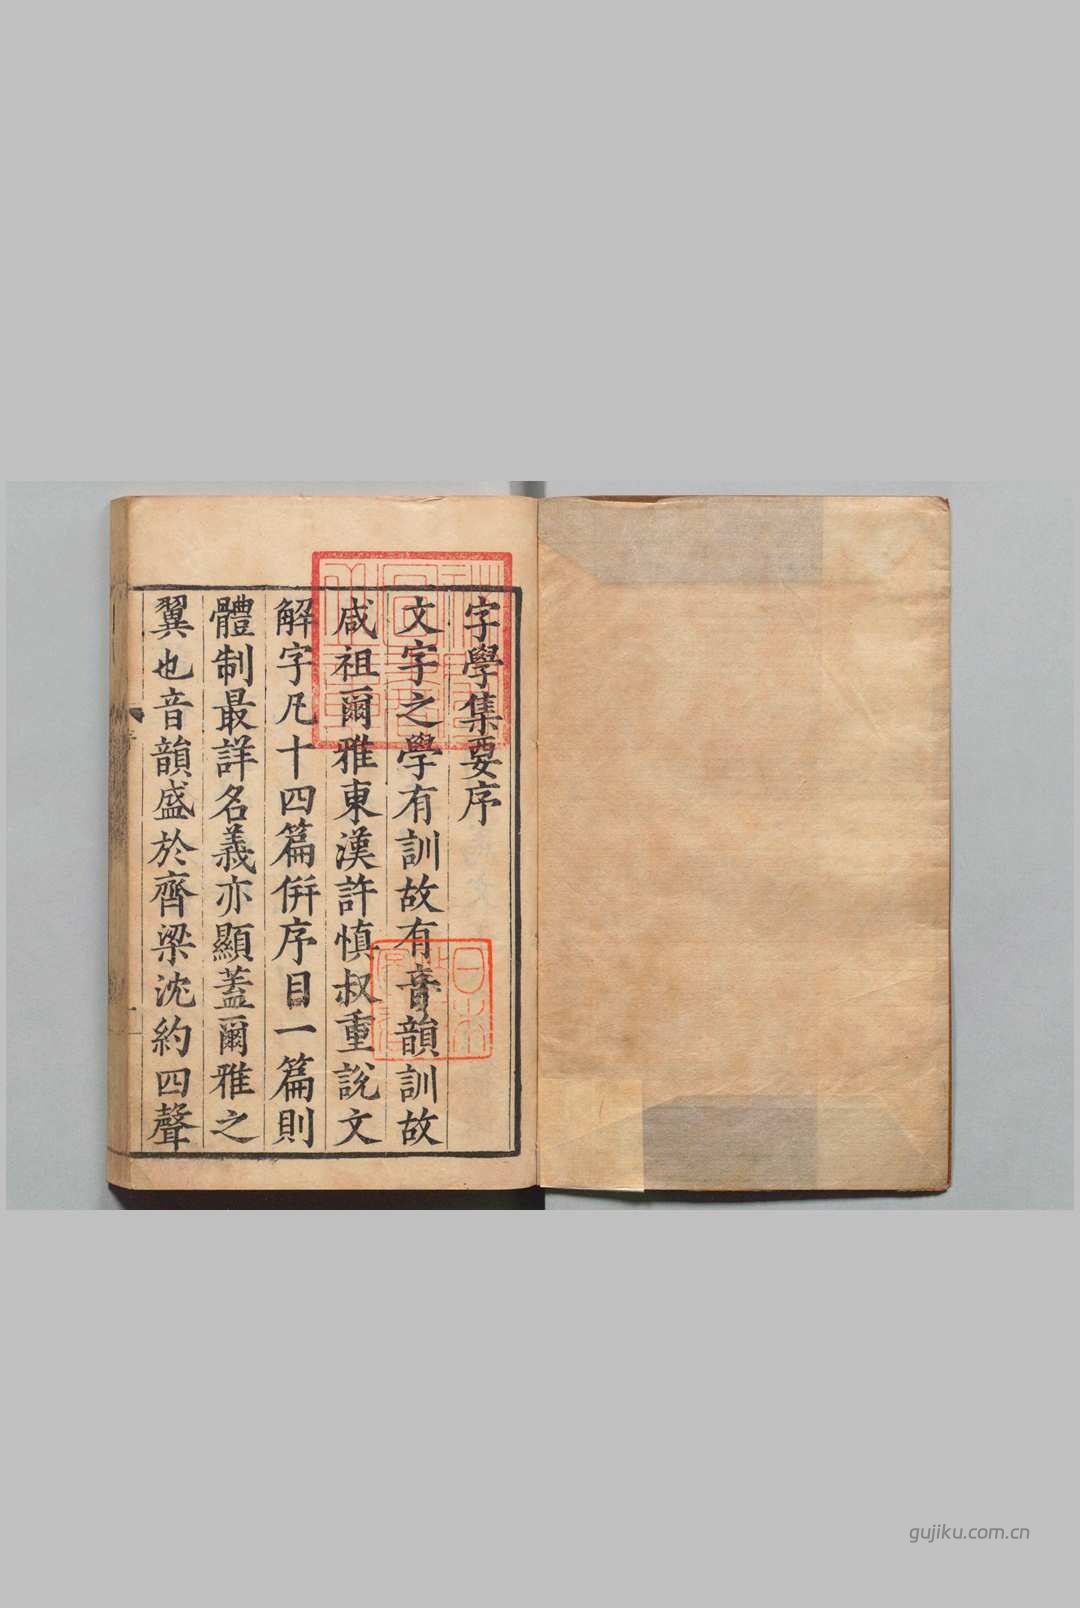 字學集要序
文字之學有訓故有音韻訓故
咸祖爾雅東漢許慎叔重說文
解字凡十四篇併序目一篇則
體制最詳名義亦顯蓋爾雅之
翼也音韻盛於齊梁沈約四聲
gujiku.com.cn